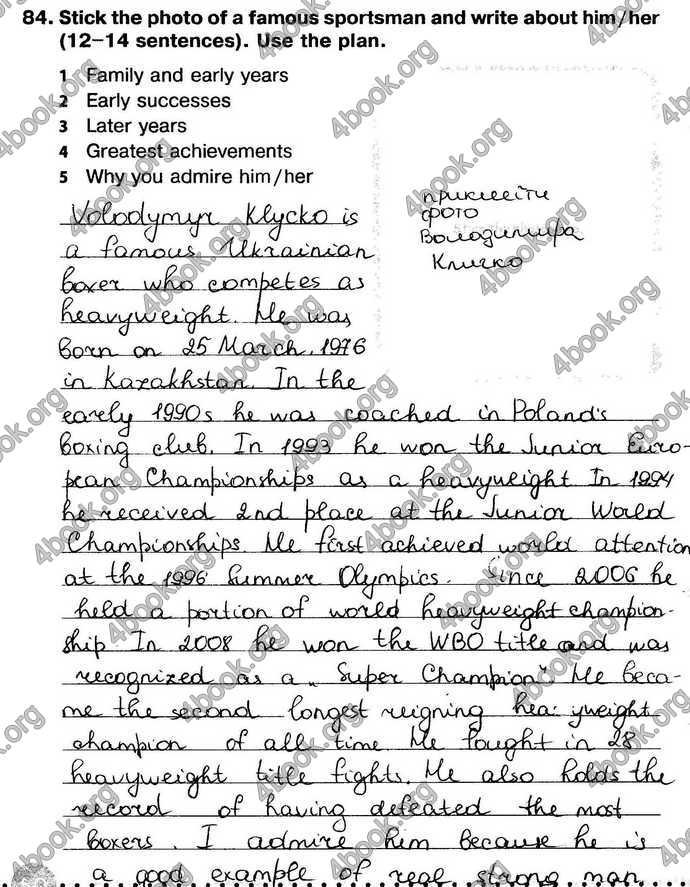 84. Stick the photo of a famous sportsman and write about him/her
(12–14 sentences). Use the plan.
1 Family and early years
2 Early successes
3 Later years
4 Greatest achievements
5 Why you admire him/her
приклеїти
фото
Володимира
Кличко
Volodymyr Klycko is
a famous Ukrainian
boxer who competes as
heavyweight. He was
born on 25 March, 1976
in Kazakhstan. In the
early 1990s he was coached in Poland's
boxing club. In 1993 he won the Junior Euro-
pean Championships as a heavyweight In 1994
he received 2nd place at the Junior World
Championships. He first achieved world attention
at the 1996 Summer Olympics. Since 2006 he
held a portion of world heavyweight champion-
ship In 2008 he won the WBO title and was
recognized as a „Super Champion” He beca-
me the second longest reigning heavyweight
champion of all time He fought in 28
heavyweight title fights. He also holds the
record of having defeated the most
boxers. I admire him because he is
a good example of real strong man.
4book.org